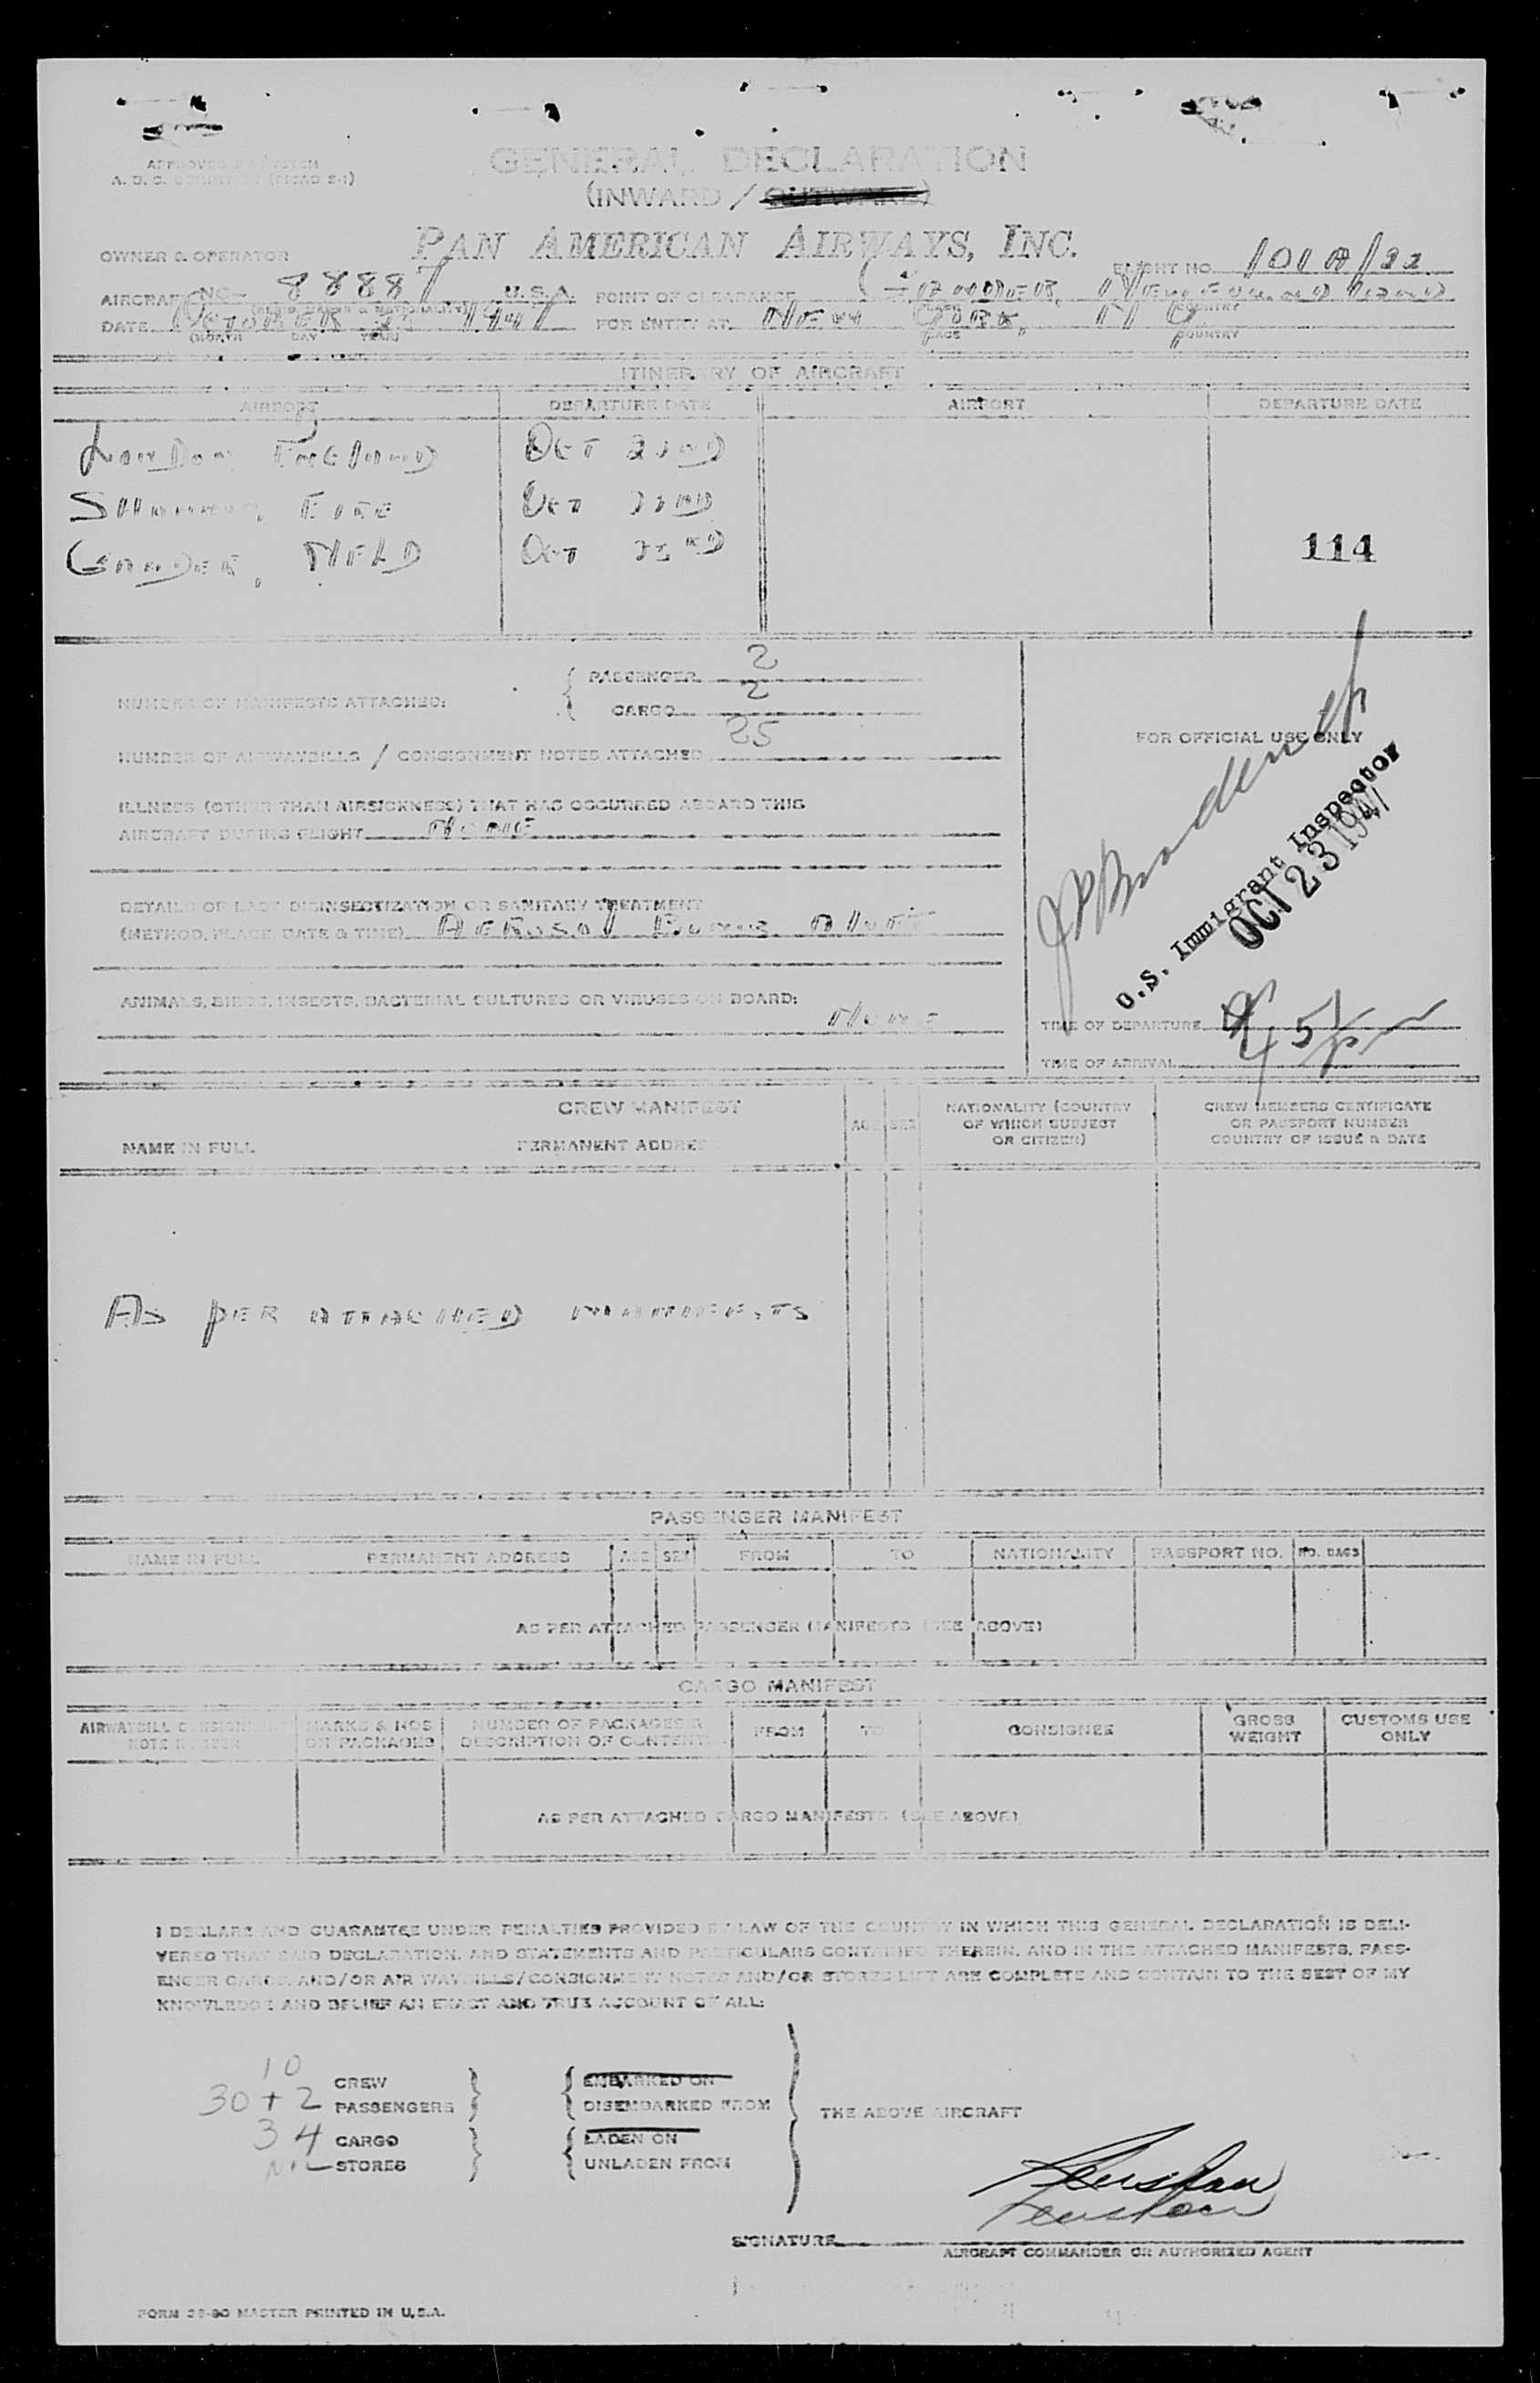 GENERAL DECLARATION
(INWARD / OUTWARD)
PAN AMERICAN AIRWAYS, INC.
OWNER & OPERATOR
FLIGHT NO. 101A/22
AIRCRAFT NC- 88887 U.S.A. POINT OF CLEARANCE GANDER, NEWFOUNDLAND
DATE OCTOBER 1947 FOR ENTRY AT NEW YORK, N Y
(MONTH DAY YEAR) PLACE COUNTRY
ITINERARY OF AIRCRAFT
AIRPORT DEPARTURE DATE AIRPORT DEPARTURE DATE
LONDON ENGLAND OCT 22ND
SHANNON, EIRE OCT 22ND
GANDER, NFLD OCT 23RD
114
NUMBER OF MANIFESTS ATTACHED:
PASSENGER 2
CARGO 2
NUMBER OF AIRWAYBILLS / CONSIGNMENT NOTES ATTACHED 25
FOR OFFICIAL USE ONLY
U.S. Immigrant Inspector
OCT 23 1947
ILLNESS (OTHER THAN AIRSICKNESS) THAT HAS OCCURRED ABOARD THIS
AIRCRAFT DURING FLIGHT NONE
DETAILS OF LAST DISINSECTIZATION OR SANITARY TREATMENT
(METHOD, PLACE, DATE & TIME) AEROSOL BOMB
ANIMALS, BIRDS, INSECTS, BACTERIAL CULTURES OR VIRUSES ON BOARD:
NONE
TIME OF DEPARTURE
TIME OF ARRIVAL
CREW MANIFEST
NAME IN FULL PERMANENT ADDRESS AGE SEX
NATIONALITY (COUNTRY
OF WHICH SUBJECT
OR CITIZEN)
CREW MEMBERS CERTIFICATE
OR PASSPORT NUMBER
COUNTRY OF ISSUE & DATE
AS PER ATTACHED MANIFESTS
PASSENGER MANIFEST
NAME IN FULL PERMANENT ADDRESS AGE SEX FROM TO NATIONALITY PASSPORT NO. NO. BAGS
AS PER ATTACHED PASSENGER MANIFESTS (SEE ABOVE)
CARGO MANIFEST
AIRWAYBILL CONSIGNMENT
NOTE NUMBER
MARKS & NOS
ON PACKAGES
NUMBER OF PACKAGES &
DESCRIPTION OF CONTENTS
FROM TO CONSIGNEE
GROSS
WEIGHT
CUSTOMS USE
ONLY
AS PER ATTACHED CARGO MANIFESTS (SEE ABOVE)
I DECLARE AND GUARANTEE UNDER PENALTIES PROVIDED BY LAW OF THE COUNTRY IN WHICH THIS GENERAL DECLARATION IS DELI-
VERED THAT SAID DECLARATION, AND STATEMENTS AND PARTICULARS CONTAINED THEREIN, AND IN THE ATTACHED MANIFESTS, PASS-
ENGER CARGO, AND/OR AIR WAYBILLS/CONSIGNMENT NOTES AND/OR STORES LIST ARE COMPLETE AND CONTAIN TO THE BEST OF MY
KNOWLEDGE AND BELIEF AN EXACT AND TRUE ACCOUNT OF ALL:
10 CREW
30 + 2 PASSENGERS
34 CARGO
NIL STORES
EMBARKED ON
DISEMBARKED FROM
LADEN ON
UNLADEN FROM
THE ABOVE AIRCRAFT
SIGNATURE
AIRCRAFT COMMANDER OR AUTHORIZED AGENT
FORM 38-80 MASTER PRINTED IN U.S.A.